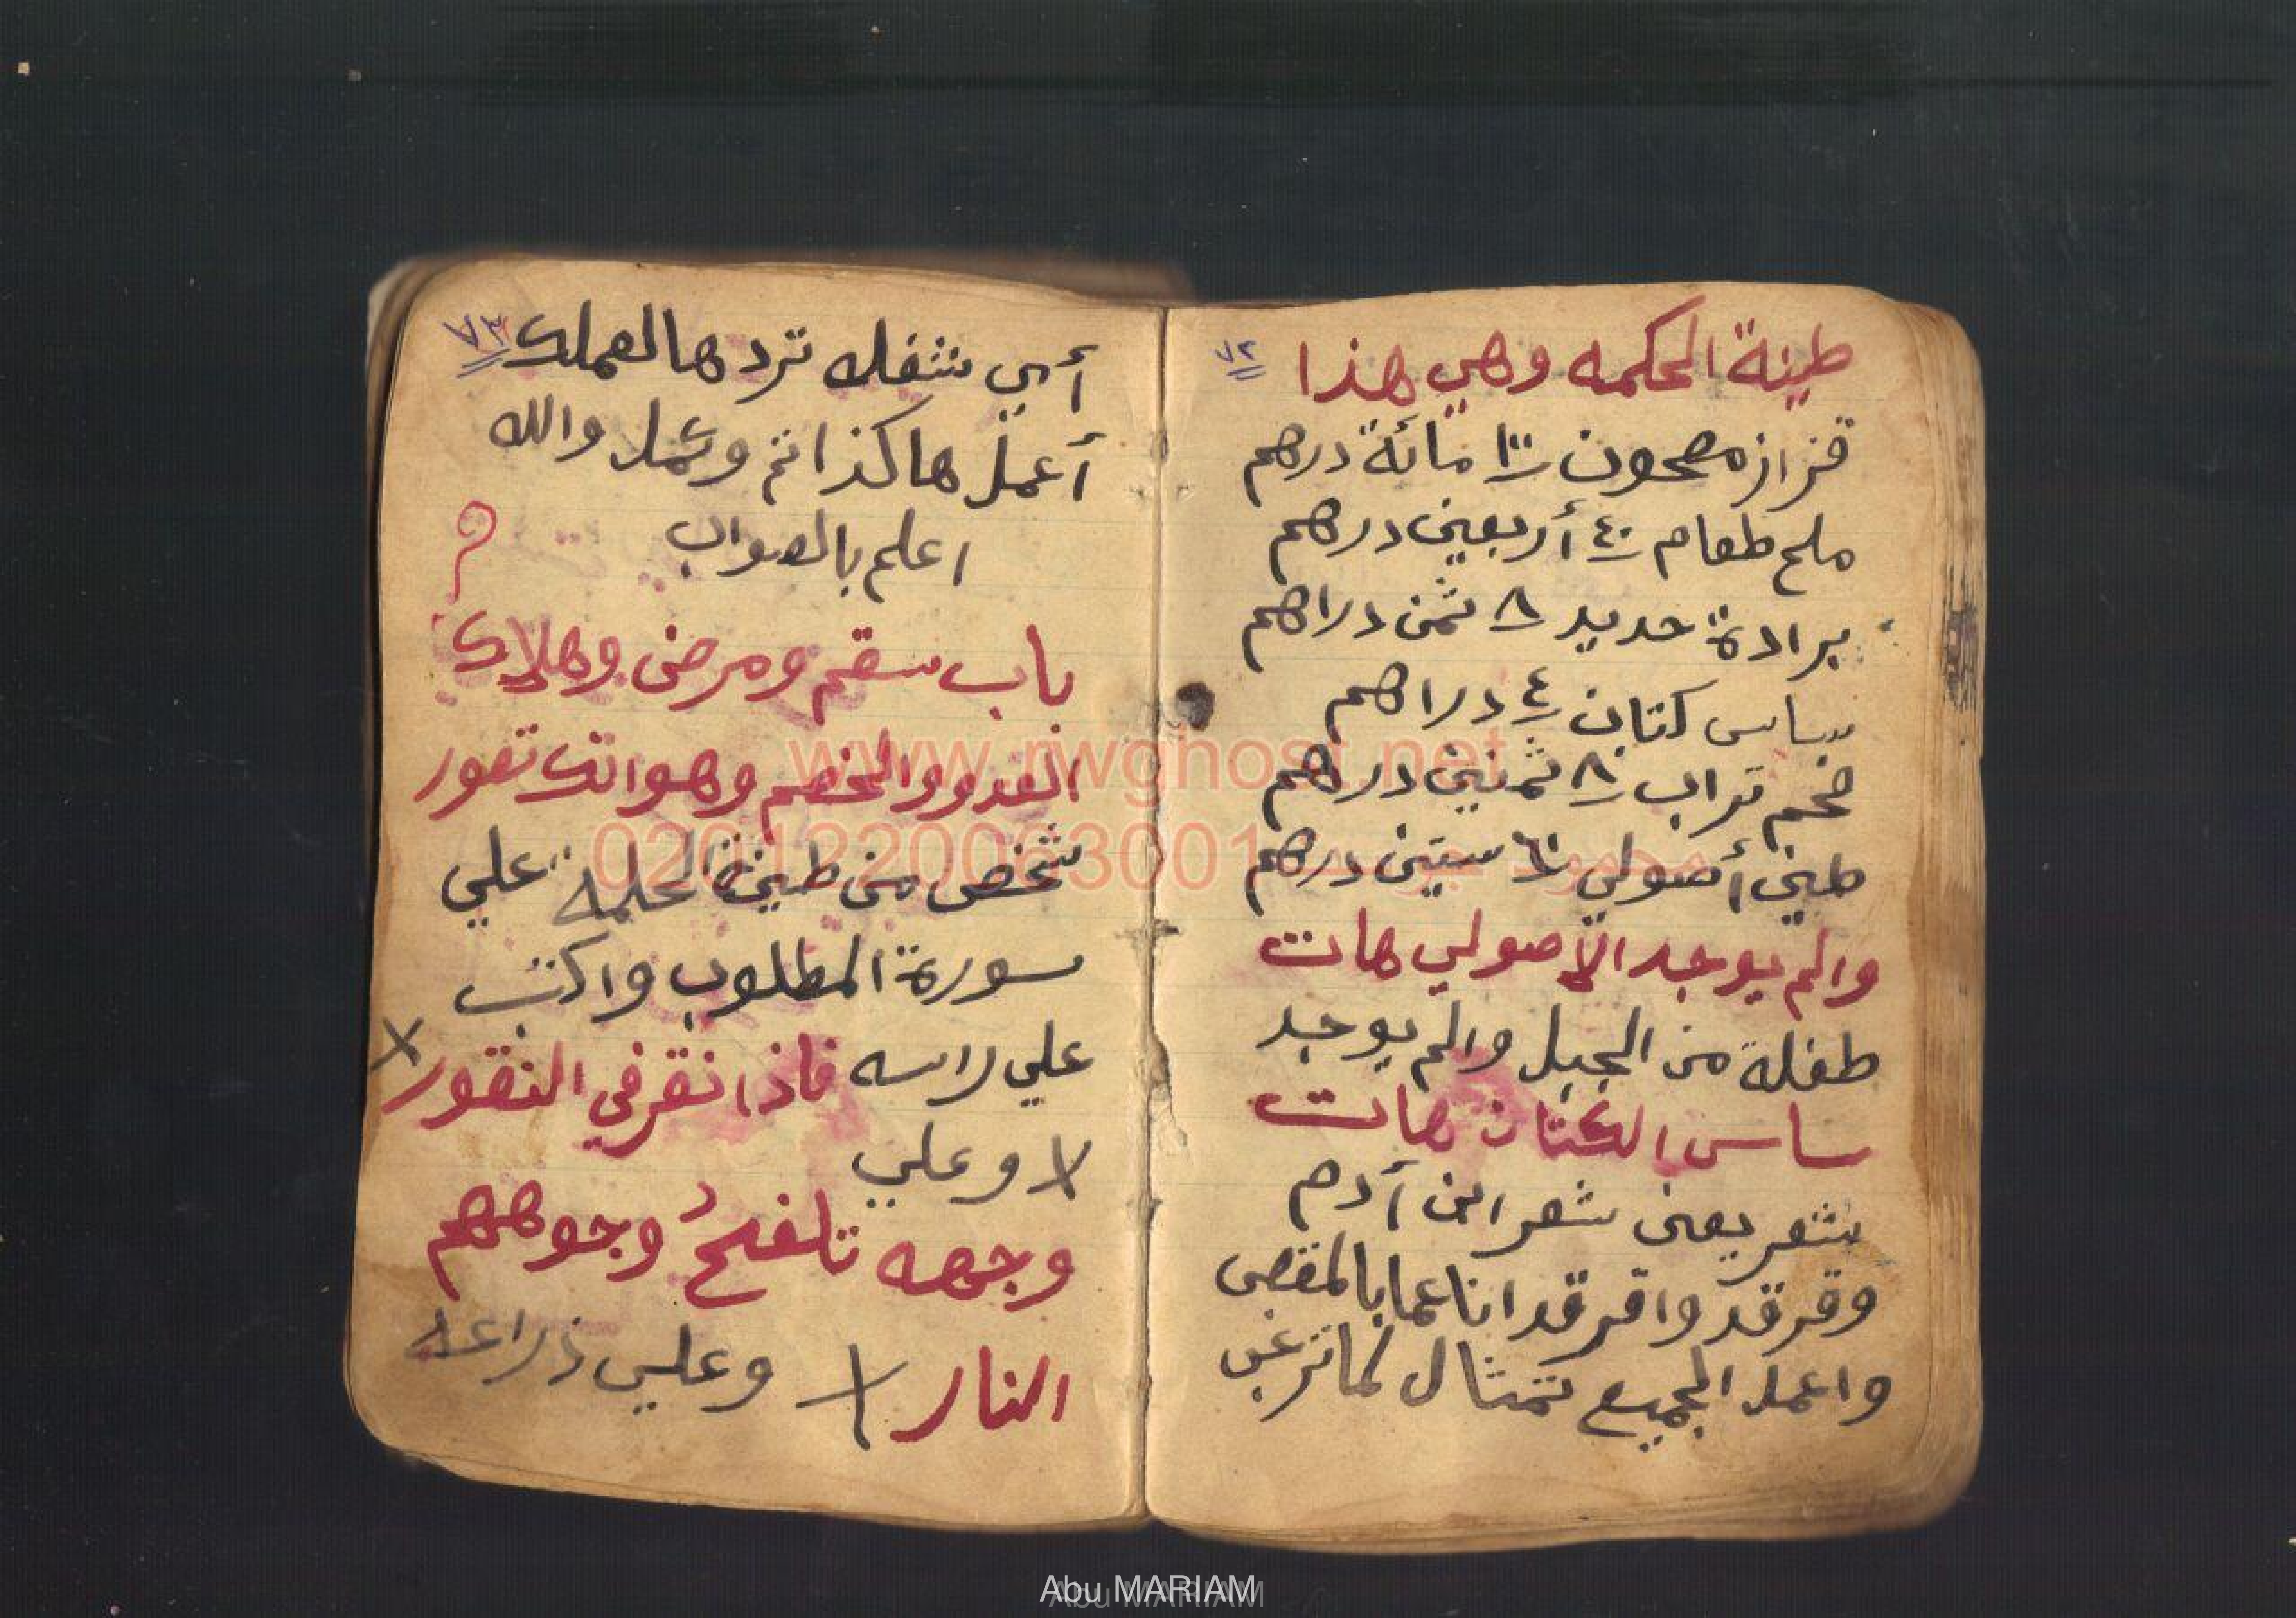 طينة الحكمه وهي هذا ٧٢
قزاز مصحون ١٠٠ مائة درهم
ملح طعام ٤٠ أربعين درهم
برادة حديد ٨ ثمن دراهم
ساس كتان ٤ دراهم
فحم تراب ٨٠ ثمنين درهم
طين أصولي ٦٠ ستين درهم
والم يوجد الأصولي هات
طفلة من الجبل والم يوجد
ساس الكتان هات
شعر يعني شعر ابن أدم
وقرقد واقرقد اناعما بالمقص
واعمل الجميع تمثال لما ترغب
أي شغله تردها لعملك ٧٣
أعمل هاكذا تم وكمل والله
اعلم بالصواب
باب سقم ومرض وهلاك
العدو والخصم وهو انك تصور
شخص من طينة الحكمه علي
سورة المطلوب واكتب
علي راسه فاذا نقر في النقور X
X وعلي
وجهه تلفح وجوههم
النار X وعلي ذراعه
www.rwghost.net
0201220063001
Abu MARIAM